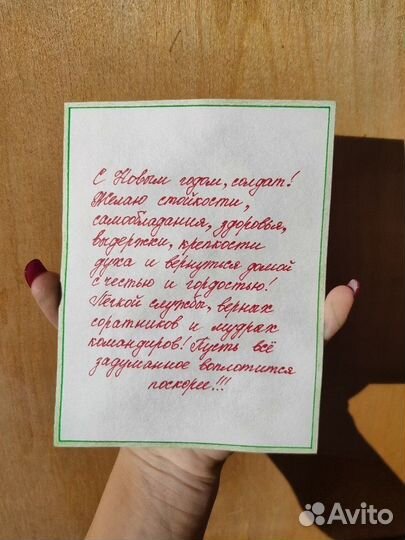 С Новым годом, солдат!
Желаю стойкости,
самообладания, здоровья,
выдержки, крепкости
духа и вернуться домой
с честью и гордостью!
Лёгкой службы, верных
соратников и мудрых
командиров! Пусть всё
задуманное воплотится
поскорее!!!
Avito